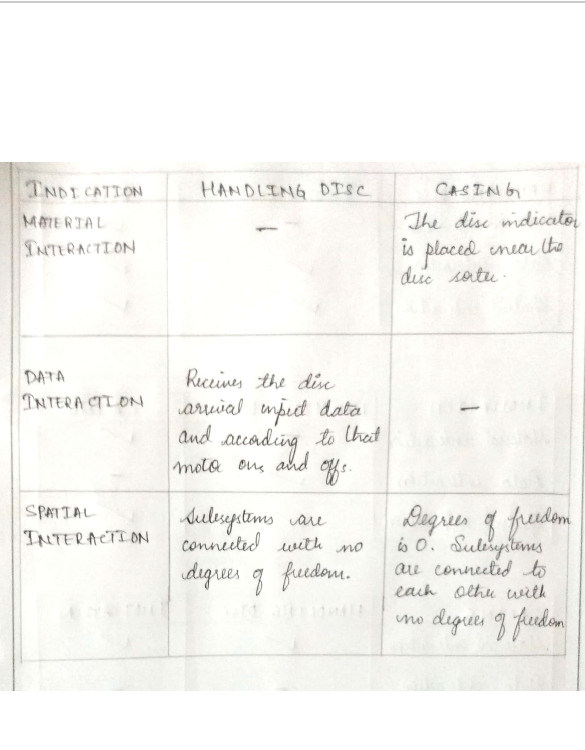 INDICATION HANDLING DISC CASING
MATERIAL
INTERACTION
—
The disc indicator
is placed near the
disc sorter.
DATA
INTERACTION
Receives the disc
arrival input data
and according to that
motor ons and offs.
—
SPATIAL
INTERACTION
Subsystems are
connected with no
degrees of freedom.
Degrees of freedom
is 0. Subsystems
are connected to
each other with
no degrees of freedom